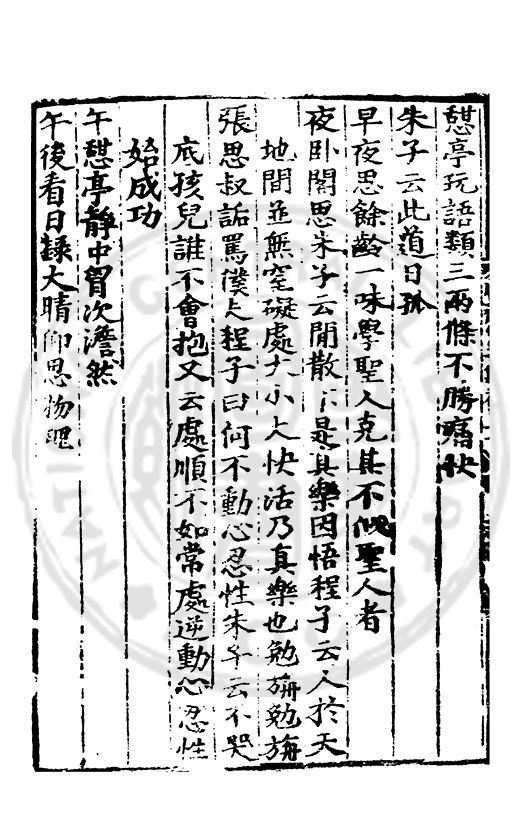 憇亭玩語類三兩條不勝痛快
朱子云此道日孤
早夜思餘齡一味學聖人克其不似聖人者
夜卧閣思朱子云閒散 是真樂因悟程子云人於天
地間並無窒礙處大小大快活乃真樂也勉旃勉旃
張思叔詬罵僕夫程子曰何不動心忍性朱子云不哭
底孩兒誰不會抱又云處順不如常處逆動心忍性
始成功
午憇亭靜中胷次澹然
午後看日錄大晴仰思物理